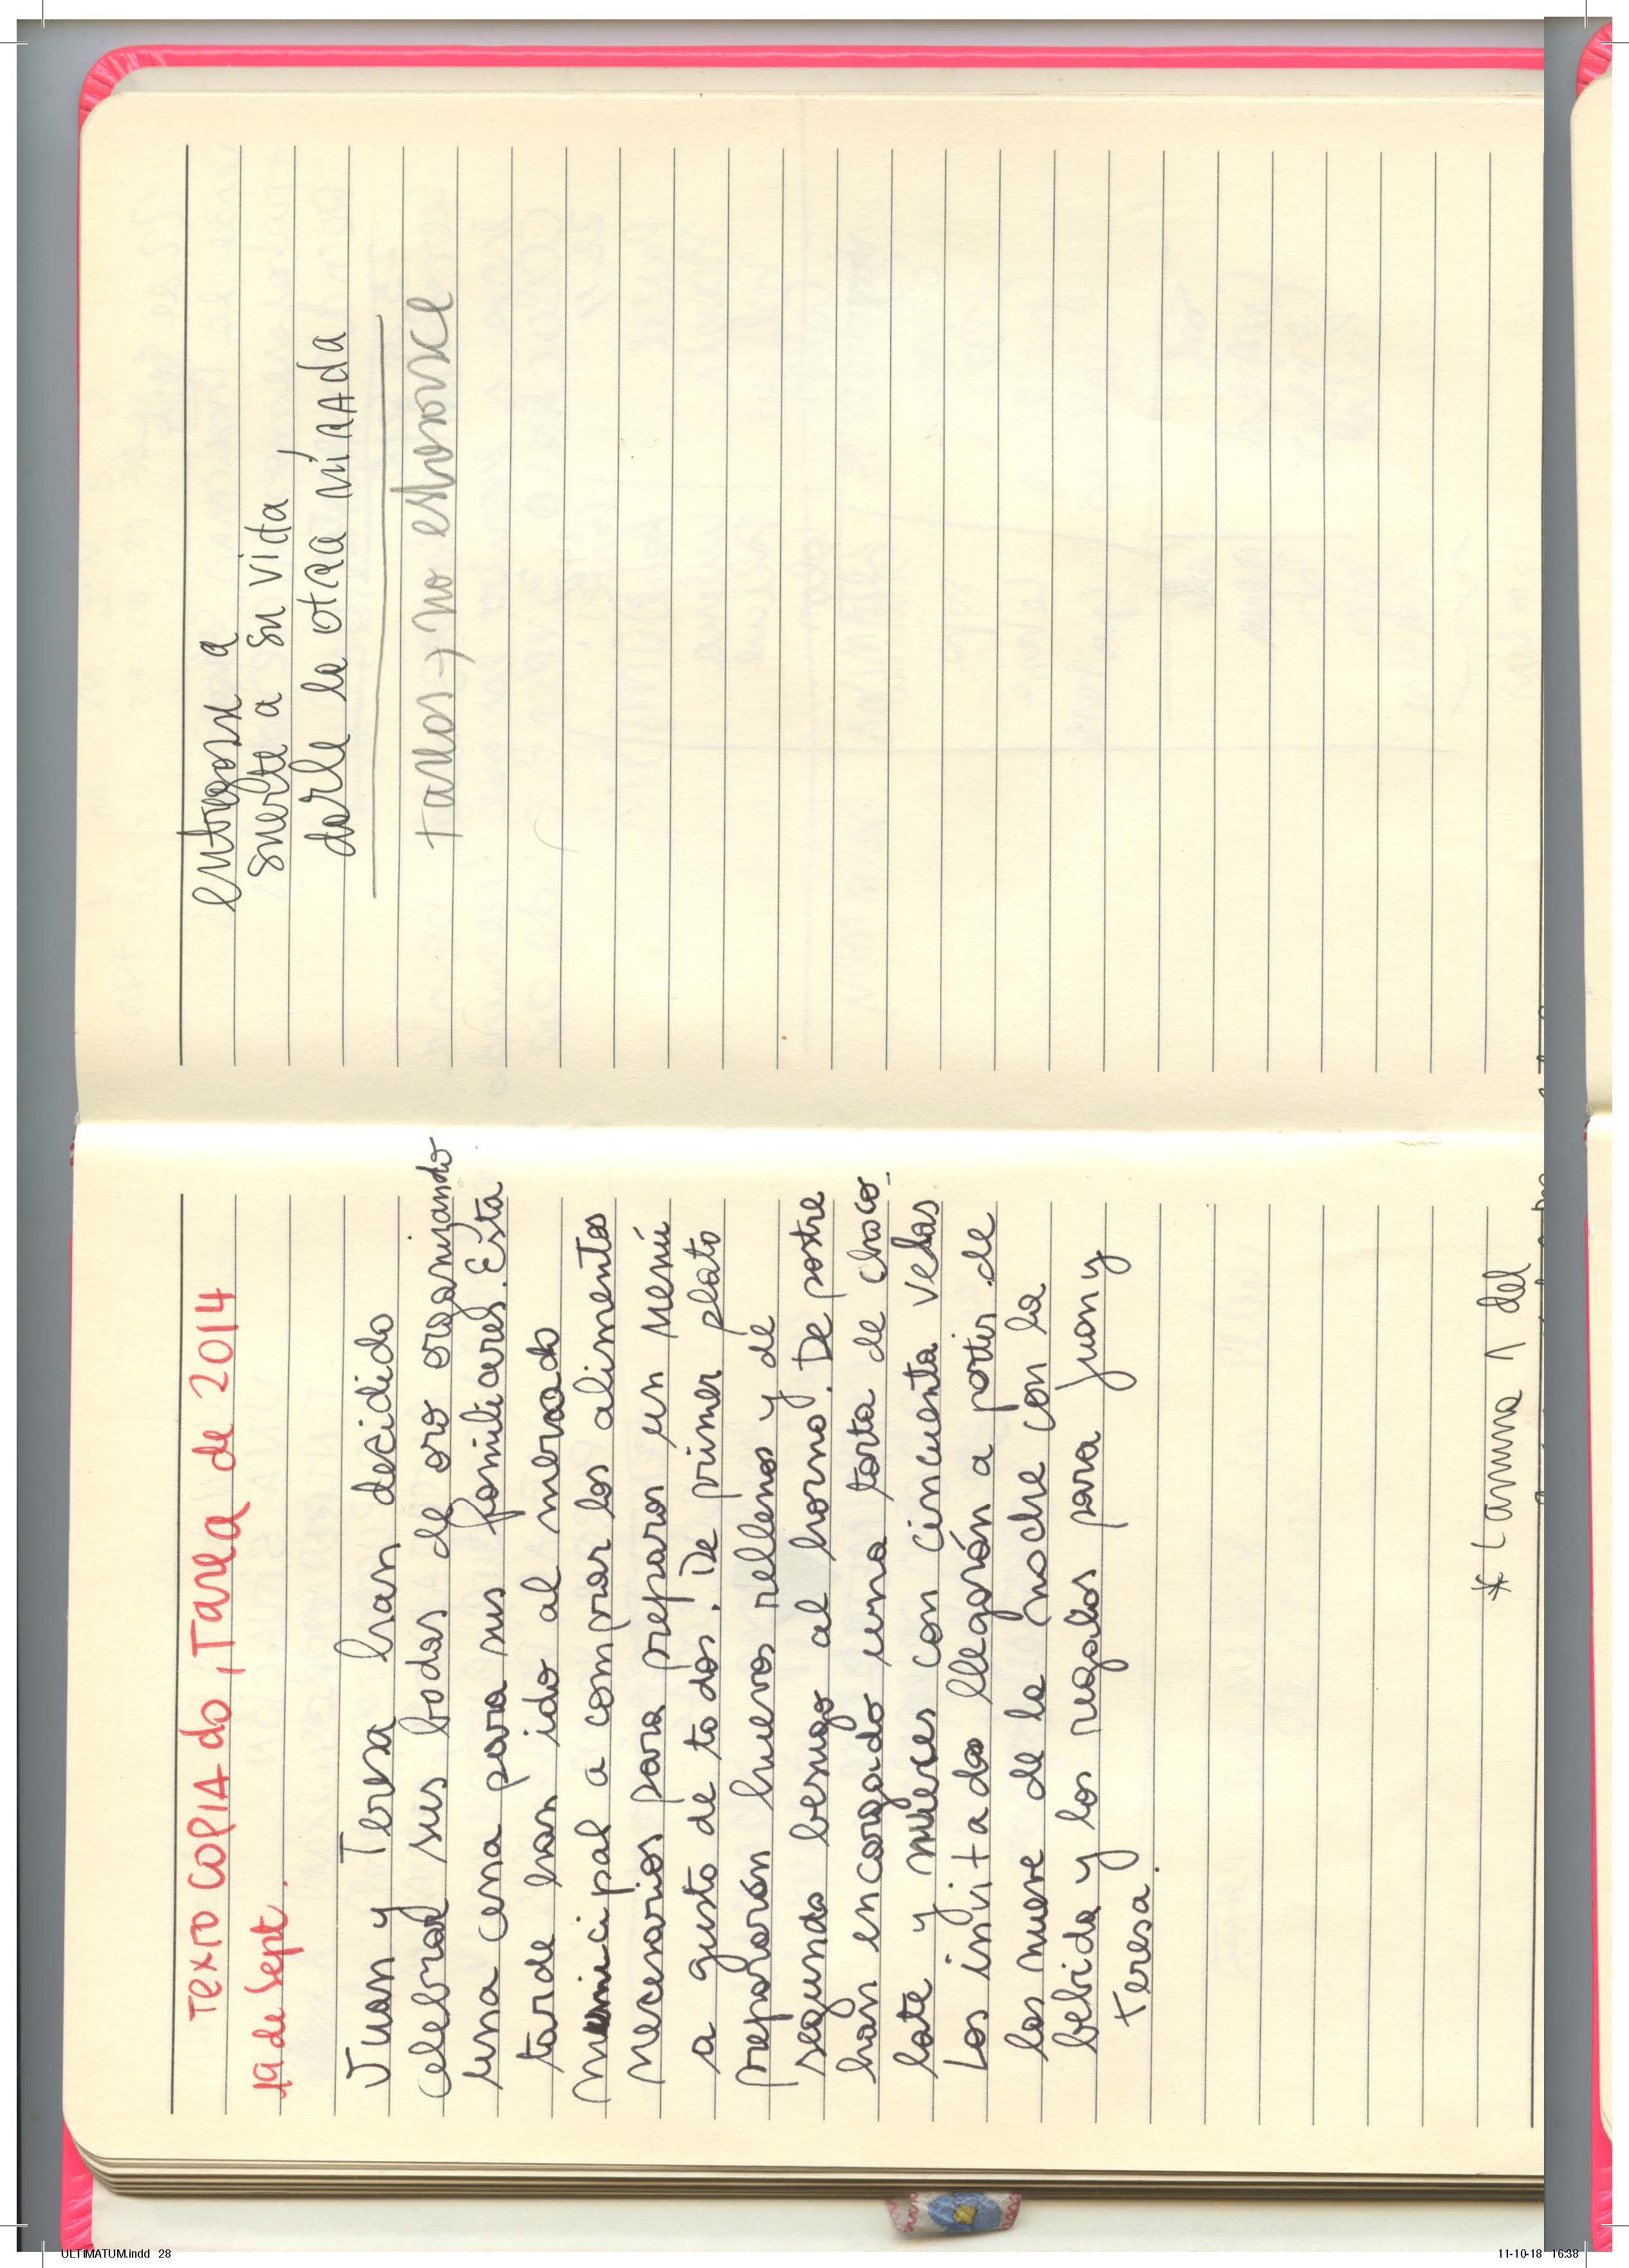 TEXTO COPIAdo, Tarea de 2014
19 de Sept.
Juan y Teresa han decidido
celebrar sus bodas de oro organizando
una cena para sus familiares. Esta
tarde han ido al mercado
municipal a comprar los alimentos
necesarios para preparar un menú
a gusto de todos. De primer plato
prepararán huevos rellenos y de
segundo besugo al horno. De postre
han encargado una torta de choco-
late y nueces con cincuenta velas
Los invitados llegarán a partir de
las nueve de la noche con la
bebida y los regalos para Juan y
Teresa.
* Lamina 1 del
entregarse a
suerte a su vida
darle la otra mirada
tareas → no
ULTIMATUM.indd 28
11-10-18 16:38